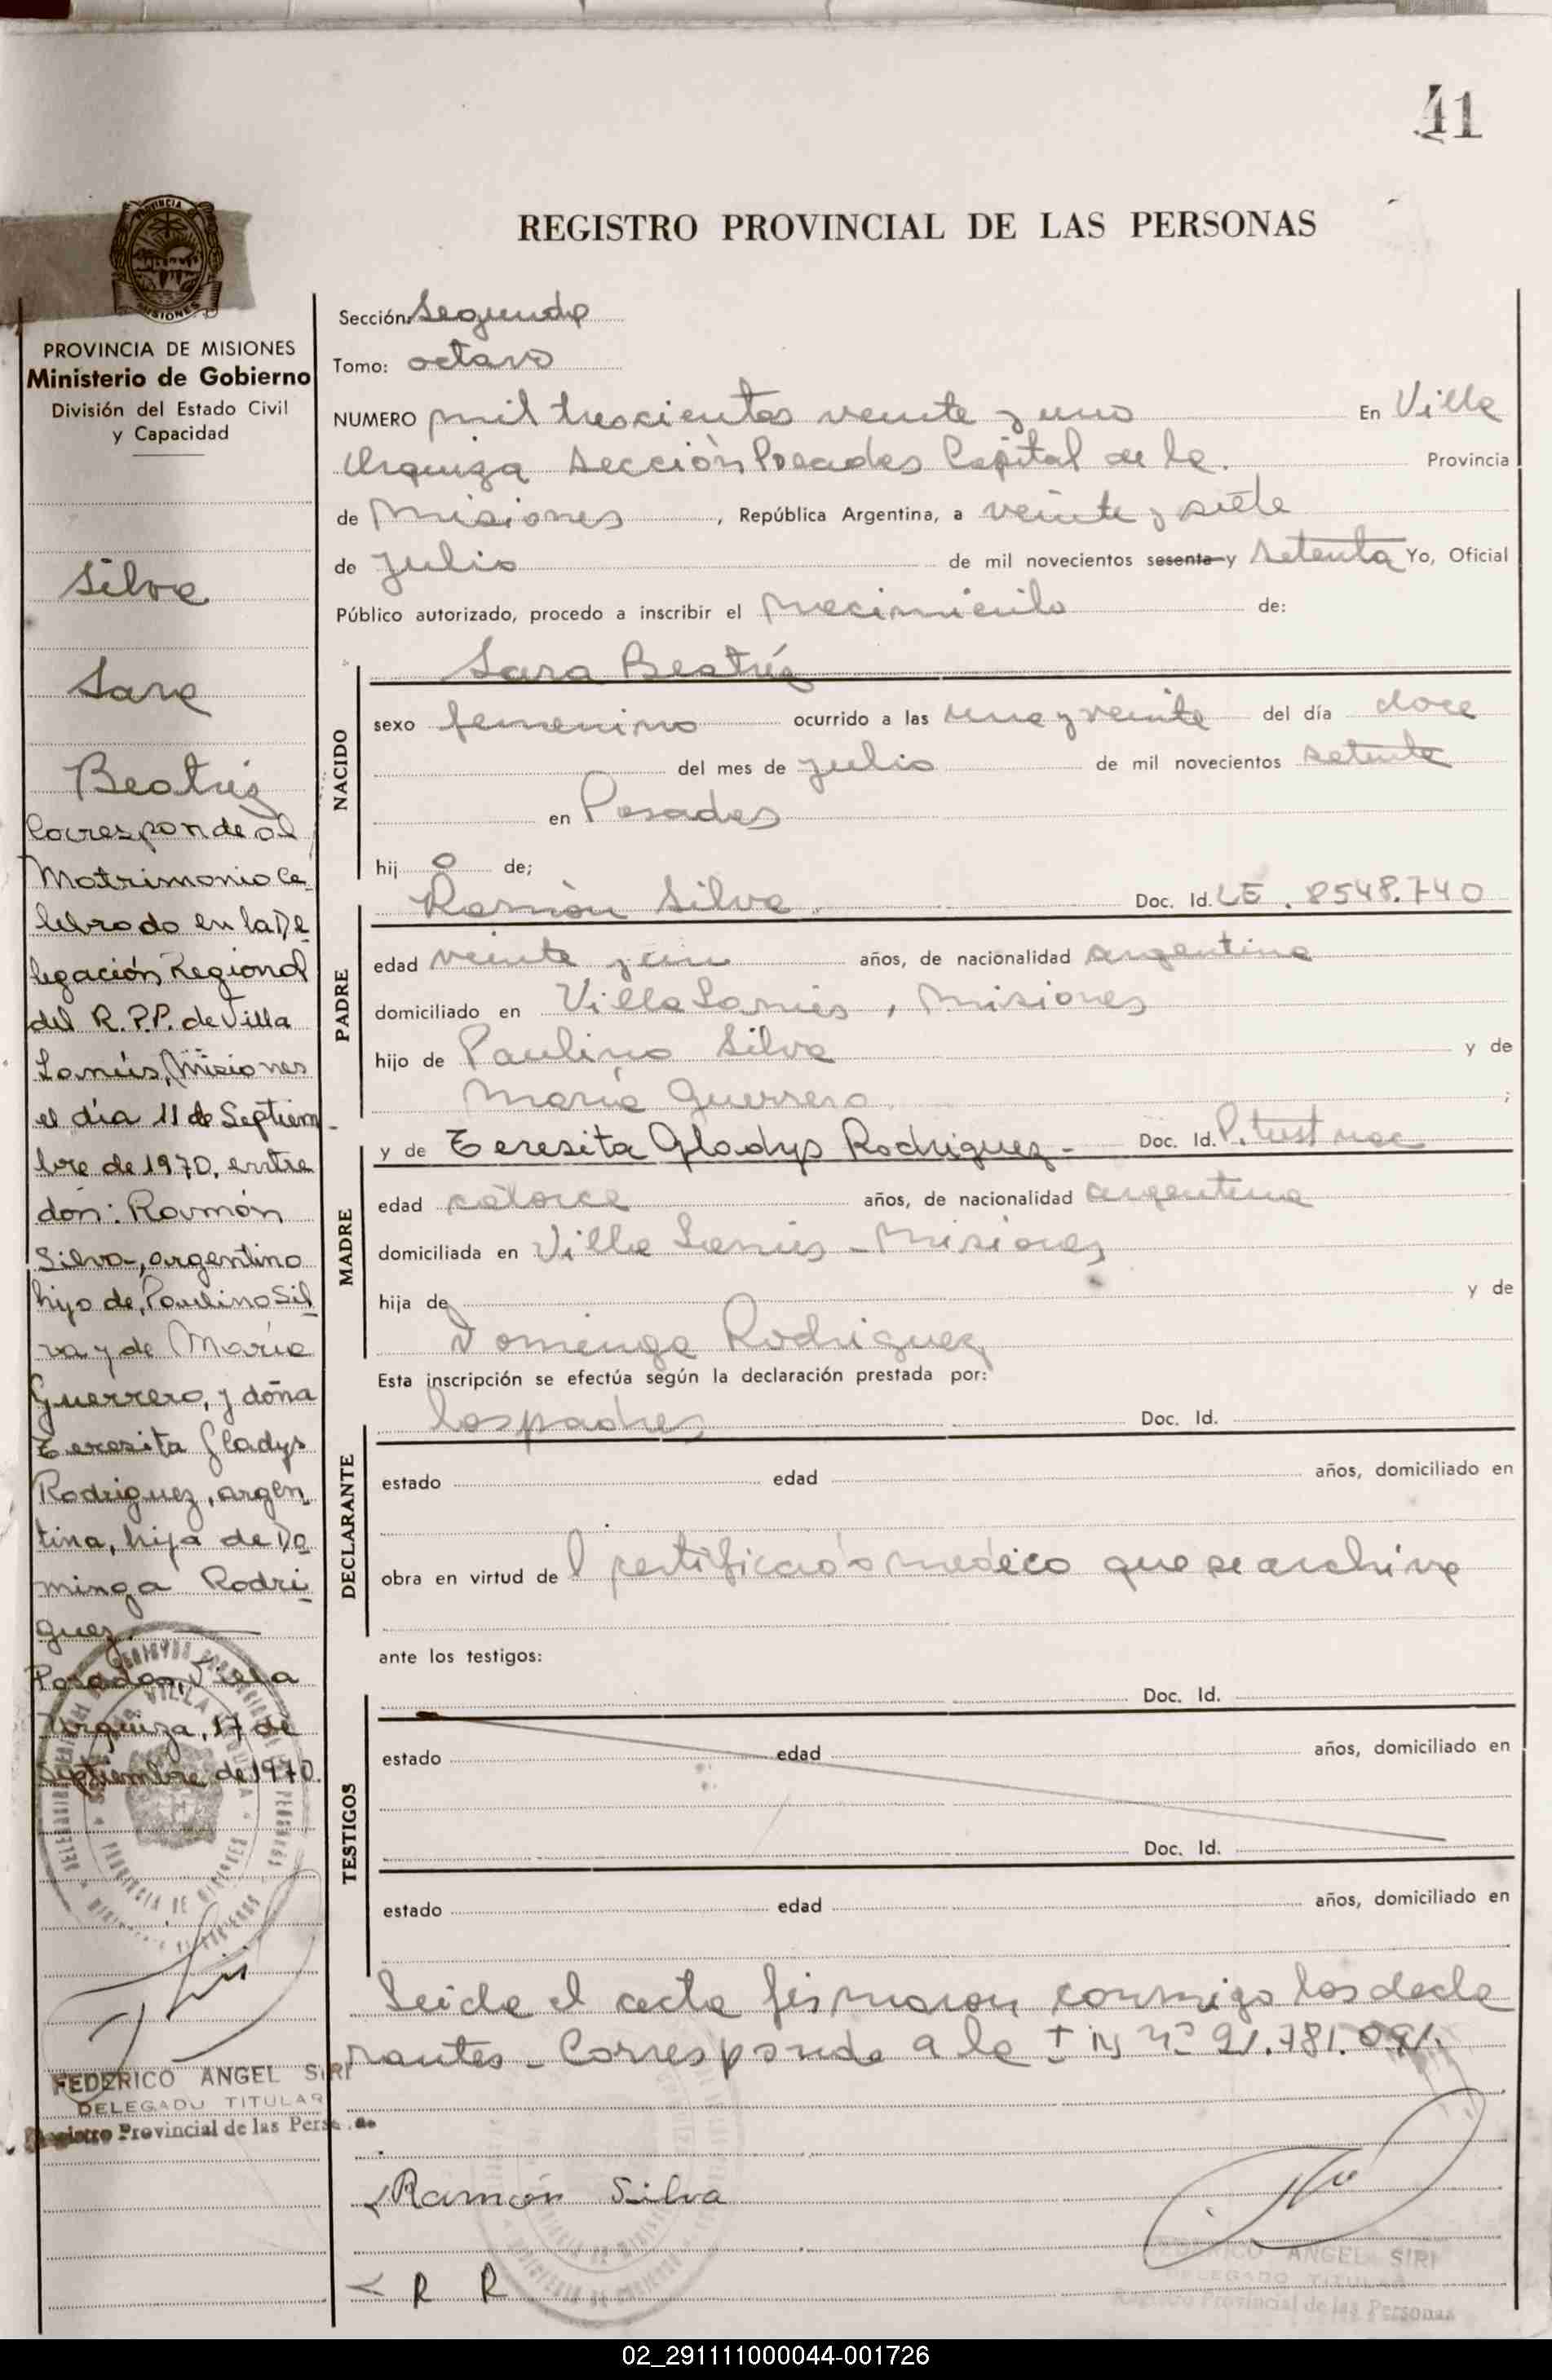 41
REGISTRO PROVINCIAL DE LAS PERSONAS
PROVINCIA
MISIONES
PROVINCIA DE MISIONES
Ministerio de Gobierno
División del Estado Civil
y Capacidad
Silva
Sara
Beatriz
Corresponde al
Matrimonio Ce-
lebrado en la De
legación Regional
del R.P.P. de Villa
Lanús, Misiones
el día 11 de Septiem-
bre de 1970, entre
don: Ramón
Silva, argentino
hijo de, Paulino Sil
va y de María
Guerrero, y doña
Teresita Gladys
Rodriguez, argen
tina, hija de Do
minga Rodri
guez.
Posadas, Villa
Urquiza, 17 de
Septiembre de 1970.
FEDERICO ANGEL SIRI
DELEGADO TITULAR
Registro Provincial de las Personas
Sección: Segunda
Tomo: octavo
NUMERO mil trescientos veinte y uno En Villa
Urquiza Sección Posadas Capital de la Provincia
de Misiones, República Argentina, a veinte y siete
de julio de mil novecientos sesenta y setenta Yo, Oficial
Público autorizado, procedo a inscribir el nacimiento de:
NACIDO
Sara Beatríz
sexo femenino ocurrido a las una y veinte del día doce
del mes de julio de mil novecientos setenta
en Posadas
hij a de;
PADRE
Ramón Silva Doc. Id. LE. 8548.740
edad veinte y un años, de nacionalidad argentina
domiciliado en Villa Lanús, Misiones
hijo de Paulino Silva y de
María Guerrero ;
MADRE
y de Teresita Gladys Rodriguez.- Doc. Id.
edad catorce años, de nacionalidad argentina
domiciliada en Villa Lanús - Misiones
hija de y de
Dominga Rodriguez
Esta inscripción se efectúa según la declaración prestada por:
DECLARANTE
los padres Doc. Id.
estado edad años, domiciliado en
obra en virtud de l certificado médico que se archiva
ante los testigos:
TESTIGOS
Doc. Id.
estado edad años, domiciliado en
Doc. Id.
estado edad años, domiciliado en
Leida el acta firmaron conmigo los decla
rantes - Corresponde a la Nº 21.781.091.
Ramón Silva
R R
FEDERICO ANGEL SIRI
DELEGADO TITULAR
Registro Provincial de las Personas
02_291111000044-001726